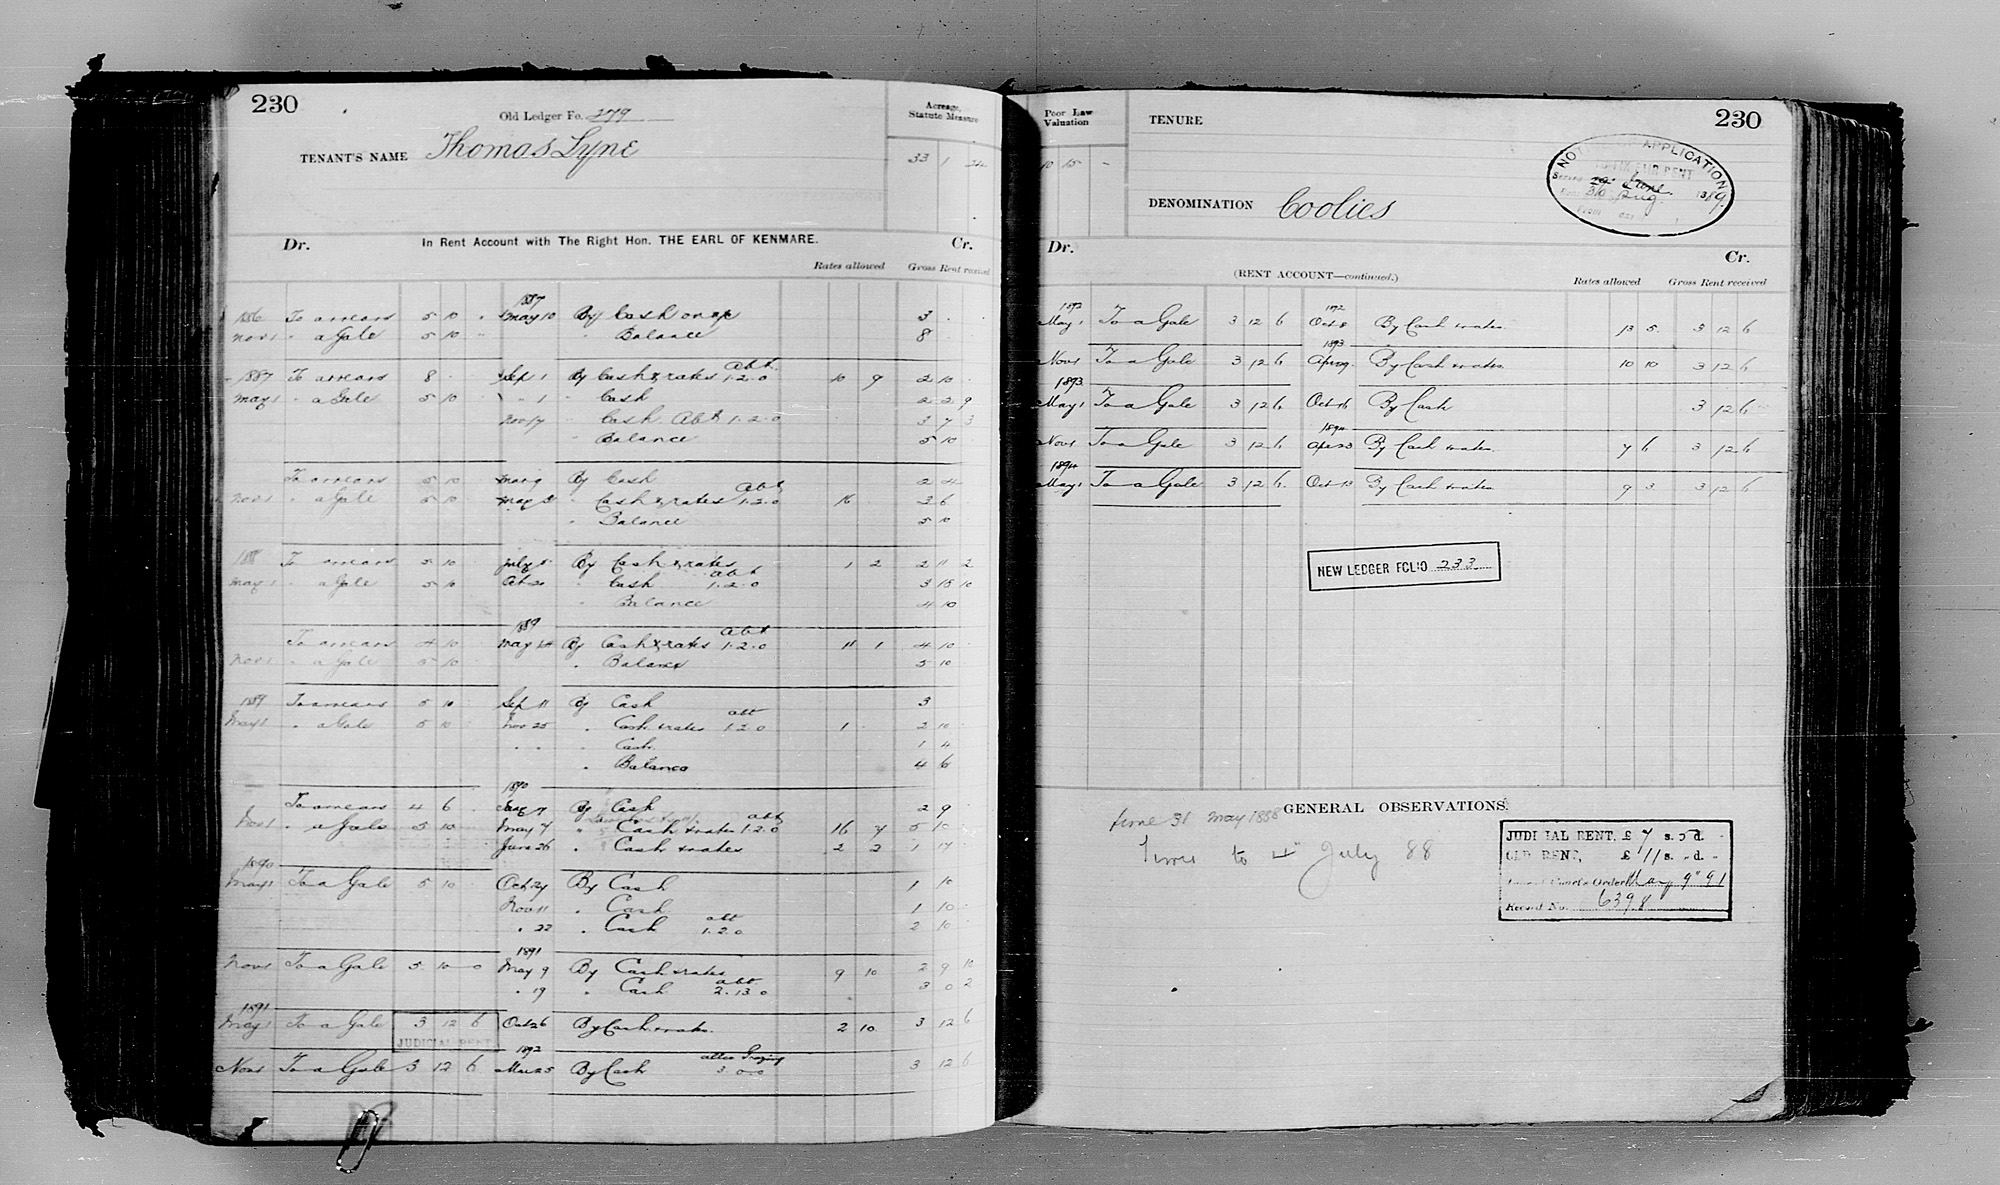 230
Old Ledger Fo. 279
TENANT'S NAME Thomas Lyne
Acreage,
Statute Measure
33 1
Dr. In Rent Account with The Right Hon. THE EARL OF KENMARE. Cr.
Rates allowed Gross Rent received
1887
1886 To arrears 5 10 - May 10 By Cash on a/c 3 - -
Nov 1 " a Gale 5 10 - " Balance 8
1887 To arrears 8 - Sep 1 By Cash & rates Abt 1.2.0 10 9 2 10 -
May 1 " a Gale 5 10 " 1 " Cash 2 2 9
Nov 17 " Cash Abt 1.2.0 3 7 3
" Balance 5 10
To arrears 5 10 By Cash 2 4
Nov 1 " a Gale 5 10 May 8 " Cash & rates Abt 1.2.0 16 3 6
" Balance 5 10
1888 To arrears 5 10 July 5 By Cash & rates 1 2 2 11 2
May 1 " a Gale 5 10 Oct 20 " Cash abt 1.2.0 3 15 10
" Balance 4 10
1889
To arrears 4 10 May 14 By Cash & rates Abt 1.2.0 11 1 4 10
Nov 1 " a Gale 5 10 " Balance 5 10
1889 To arrears 5 10 Sep 11 By Cash 3
May 1 " a Gale 5 10 Nov 25 " Cash & rates abt 1.2.0 1 - 2 10
" " " Cash 1 4
" Balance 4 6
1890
To arrears 4 6 By Cash 2 9
Nov 1 " a Gale 5 10 May 7 " Cash & rates abt 1.2.0 16 7 5 10
June 26 " Cash & rates 2 2 1 17
1890
May 1 To a Gale 5 10 Oct 27 By Cash 1 10
Nov 11 " Cash 1 10
" 22 " Cash abt 1.2.0 2 10
1891
Nov 1 To a Gale 5 10 0 May 9 By Cash & rates 9 10 2 9 10
" 19 " Cash abt 2.13.0 3 0 2
1891
May 1 To a Gale 3 12 6 Oct 26 By Cash & rates 2 10 3 12 6
JUDICIAL RENT
1892
Nov 1 To a Gale 3 12 6 Mar 25 By Cash 3.0.0 3 12 6
230
Poor Law
Valuation
10 15 -
TENURE
NOTICE OF APPLICATION
TO FIX FAIR RENT
Served June 1889
Aug.
DENOMINATION Coolies
Dr. Cr.
(RENT ACCOUNT—continued.)
Rates allowed Gross Rent received
1892
May 1 To a Gale 3 12 6 Oct 8 By Cash & rates 13 5 3 12 6
1893
Nov 1 To a Gale 3 12 6 By Cash & rates 10 10 3 12 6
1893
May 1 To a Gale 3 12 6 Oct 16 By Cash 3 12 6
1894
Nov 1 To a Gale 3 12 6 Apr 23 By Cash & rates 7 6 3 12 6
1894
May 1 To a Gale 3 12 6 Oct 13 By Cash & rates 9 3 3 12 6
NEW LEDGER FOLIO 233
GENERAL OBSERVATIONS.
time 31 May 1888
Time to 4" July 88
JUDICIAL RENT, £ 7 s. 5 d. -
OLD RENT, £ 11 s. - d. -
Court's Order May 9" 91
Record No. 6398